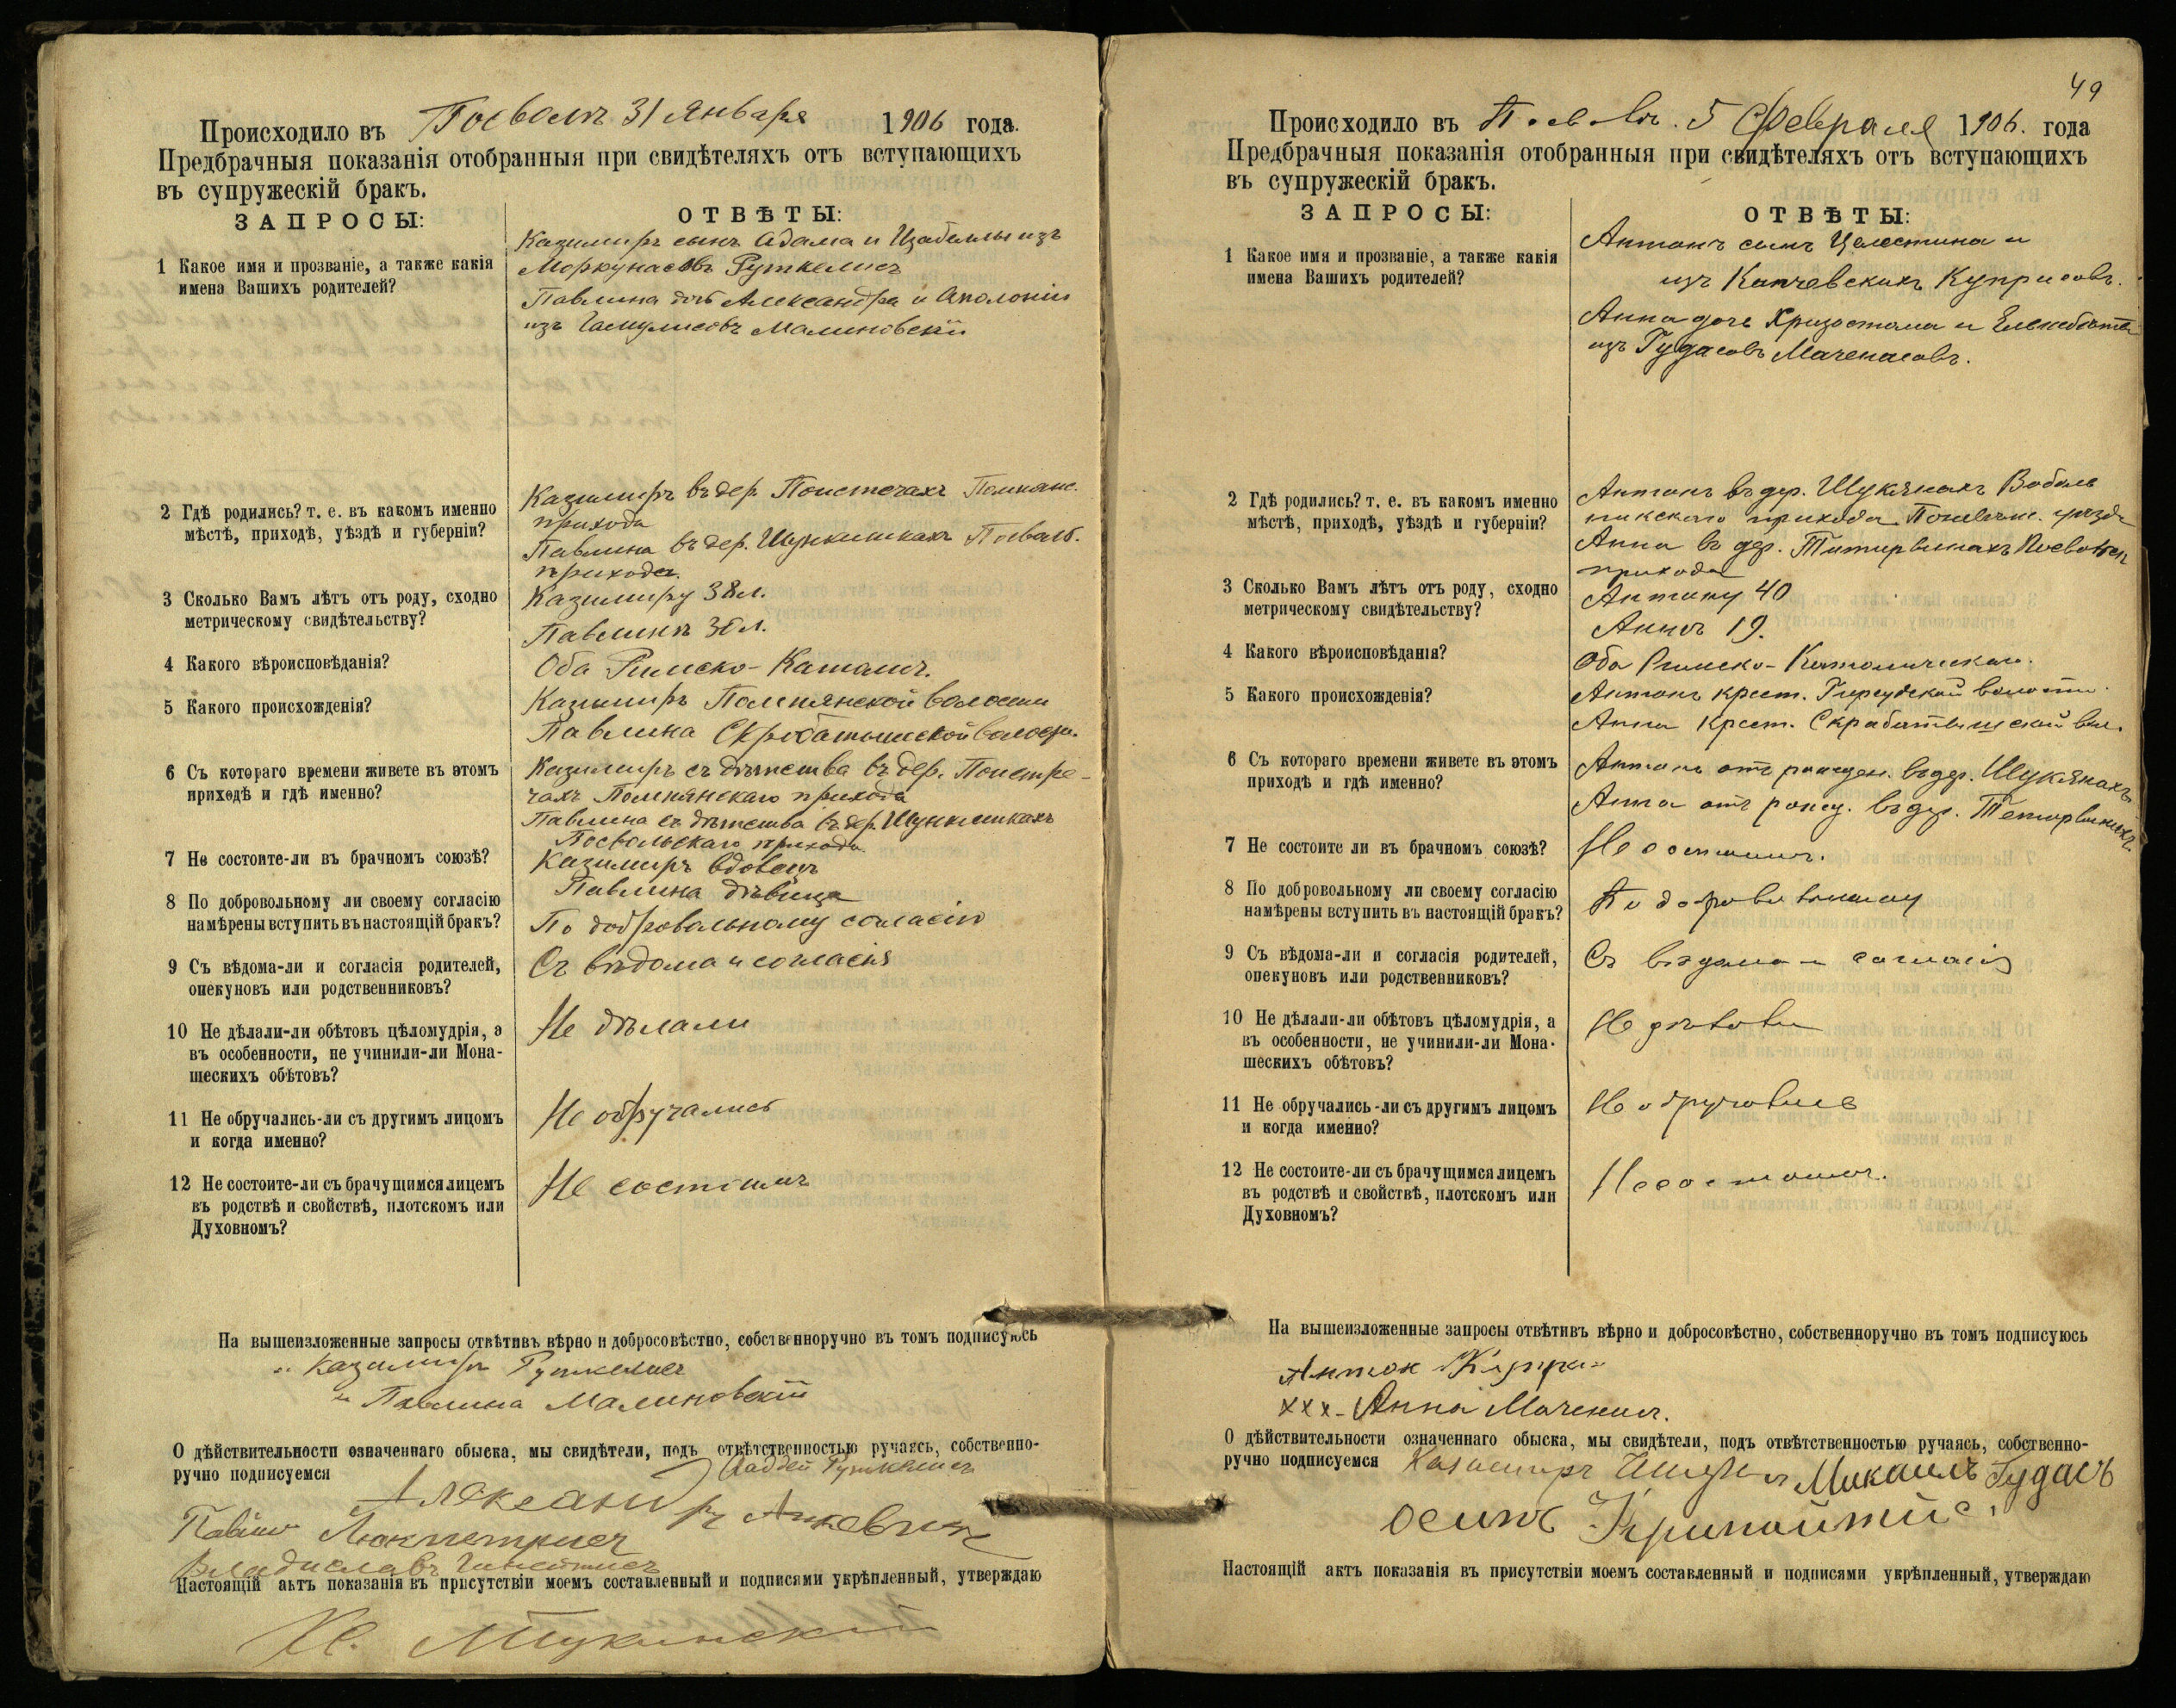 Происходило въ Посволѣ 31 Января 1906 года.
Предбрачныя показанія отобранныя при свидѣтеляхъ отъ вступающихъ
въ супружескій бракъ.
ЗАПРОСЫ:
ОТВѢТЫ:
1 Какое имя и прозваніе, а также какія
имена Вашихъ родителей?
Казимиръ сынъ Адама и Изабеллы изъ
Моркунасовъ Руткелисъ
Павлина дочь Александра и Аполоніи
изъ Малиновскій
2 Гдѣ родились? т. е. въ какомъ именно
мѣстѣ, приходѣ, уѣздѣ и губерніи?
Казимиръ въ дер.
прихода
Павлина въ дер. Посвол.
прихода.
3 Сколько Вамъ лѣтъ отъ роду, сходно
метрическому свидѣтельству?
Казимиру 38 л.
Павлинѣ 30 л.
4 Какого вѣроисповѣданія?
Оба Римско-Катол.
5 Какого происхожденія?
Казимиръ волости
Павлина волости.
6 Съ котораго времени живете въ этомъ
приходѣ и гдѣ именно?
Казимиръ съ дѣтства въ дер.
прихода
Павлина съ дѣтства въ дер.
Посвольскаго прихода.
7 Не состоите-ли въ брачномъ союзѣ?
Казимиръ вдовецъ
Павлина дѣвица
8 По добровольному ли своему согласію
намѣрены вступить въ настоящій бракъ?
По добровольному согласію
9 Съ вѣдома-ли и согласія родителей,
опекуновъ или родственниковъ?
Съ вѣдома и согласія
10 Не дѣлали-ли обѣтовъ цѣломудрія, а
въ особенности, не учинили-ли Мона-
шескихъ обѣтовъ?
Не дѣлали
11 Не обручались-ли съ другимъ лицомъ
и когда именно?
Не обручались
12 Не состоите-ли съ брачущимся лицемъ
въ родствѣ и свойствѣ, плотскомъ или
Духовномъ?
Не состоимъ
На вышеизложенные запросы отвѣтивъ вѣрно и добросовѣстно, собственноручно въ томъ подписуюсь
Казимиръ Руткелисъ
Павлина Малиновскій
О дѣйствительности означеннаго обыска, мы свидѣтели, подъ отвѣтственностью ручаясь, собственно-
ручно подписуемся
Александръ
Владиславъ
Настоящій актъ показанія въ присутствіи моемъ составленный и подписями укрѣпленный, утверждаю
49
Происходило въ 5 Февраля 1906. года
Предбрачныя показанія отобранныя при свидѣтеляхъ отъ вступающихъ
въ супружескій бракъ.
ЗАПРОСЫ:
ОТВѢТЫ:
1 Какое имя и прозваніе, а также какія
имена Вашихъ родителей?
Антонъ сынъ Целестина и
изъ Куприсовъ.
Анна дочь Хризостома и
изъ Гудасовъ Маченасовъ.
2 Гдѣ родились? т. е. въ какомъ именно
мѣстѣ, приходѣ, уѣздѣ и губерніи?
Антонъ въ дер. Шукянахъ Вабаль
никскаго прихода уѣзда
Анна въ дер.
прихода
3 Сколько Вамъ лѣтъ отъ роду, сходно
метрическому свидѣтельству?
Антону 40
Аннѣ 19.
4 Какого вѣроисповѣданія?
Оба Римско-Католическаго.
5 Какого происхожденія?
Антонъ крест. волости.
Анна крест. вол.
6 Съ котораго времени живете въ этомъ
приходѣ и гдѣ именно?
Антонъ отъ рожден. въ дер. Шукянахъ
Анна отъ рожд. въ дер.
7 Не состоите ли въ брачномъ союзѣ?
Не состоимъ.
8 По добровольному ли своему согласію
намѣрены вступить въ настоящій бракъ?
По добровольному
9 Съ вѣдома-ли и согласія родителей,
опекуновъ или родственниковъ?
Съ вѣдома и согласія
10 Не дѣлали-ли обѣтовъ цѣломудрія, а
въ особенности, не учинили-ли Мона-
шескихъ обѣтовъ?
Не дѣлали
11 Не обручались-ли съ другимъ лицомъ
и когда именно?
Не обручались
12 Не состоите-ли съ брачущимся лицемъ
въ родствѣ и свойствѣ, плотскомъ или
Духовномъ?
Не состоимъ.
На вышеизложенные запросы отвѣтивъ вѣрно и добросовѣстно, собственноручно въ томъ подписуюсь
Антон
xxx-Анна
О дѣйствительности означеннаго обыска, мы свидѣтели, подъ отвѣтственностью ручаясь, собственно-
ручно подписуемся Казимиръ Микаилъ Гудасъ
Осипъ
Настоящій актъ показанія въ присутствіи моемъ составленный и подписями укрѣпленный, утверждаю